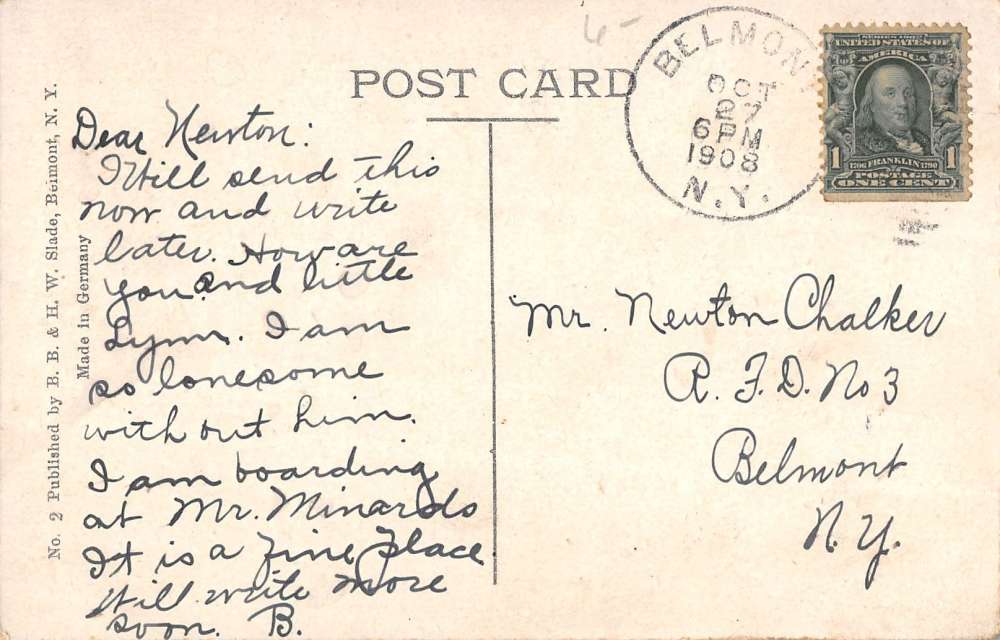 6-
POST CARD
BELMON
OCT
27
6 PM
1908
N.Y.
SERIES 1902
UNITED STATES OF
AMERICA
1 1706 FRANKLIN 1790 1
POSTAGE
ONE CENT
No. 2 Published by B. B. & H. W. Slade, Belmont, N. Y.
Made in Germany
Dear Newton:
I Will send this
now and write
later. How are
you and little
Lynn. I am
so lonesome
with out him.
I am boarding
at Mr. Minards
It is a fine place
Will write more
soon. B.
Mr. Newton Chalker
R. F. D. No 3
Belmont
N. Y.